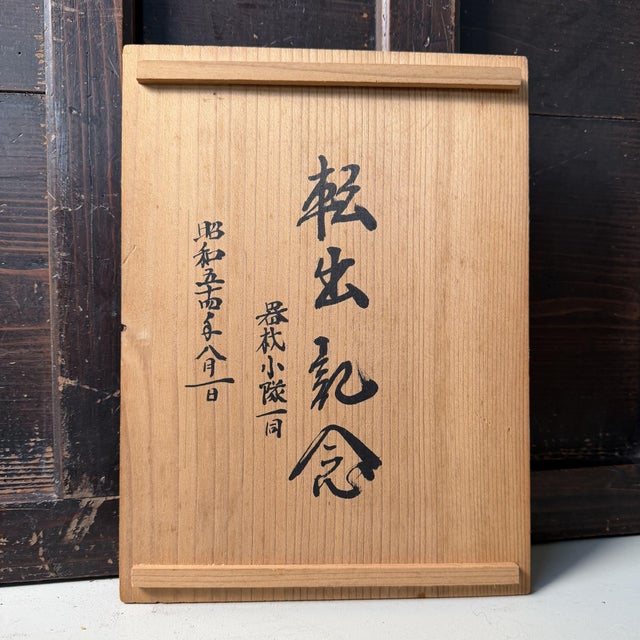 転出記念
器材小隊一同
昭和五十四年八月一日